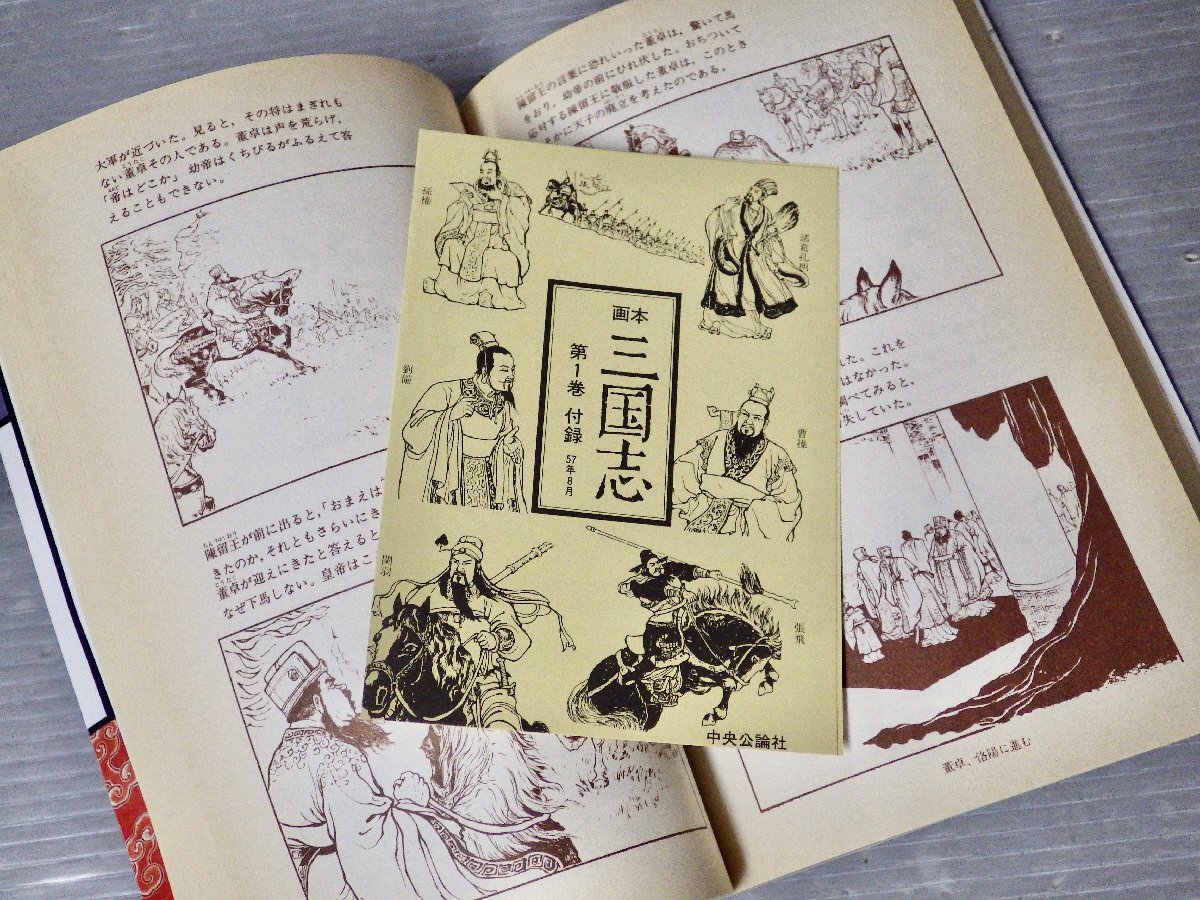 大軍が近づいた。見ると，その将はまぎれも
ない董卓その人である。董卓は声を荒らげ，
「帝はどこか」幼帝はくちびるがふるえて答
えることもできない。
陳留王が前に出ると，「おまえは
きたのか，それともさらいにき
董卓が迎えにきたと答えると
なぜ下馬しない。皇帝はこ
陳留王の言葉に恐れいった董卓は，驚いて馬
をおり，幼帝の前にひれ伏した。おちついて
応対する陳留王に敬服した董卓は，このとき
かに天子の廃立を考えたのである。
れた。これを
はなかった。
調べてみると，
失していた。
董卓，洛陽に進む
孫権
諸葛孔明
劉備
曹操
関羽
張飛
画本
三国志
第1巻 付録
57年8月
中央公論社